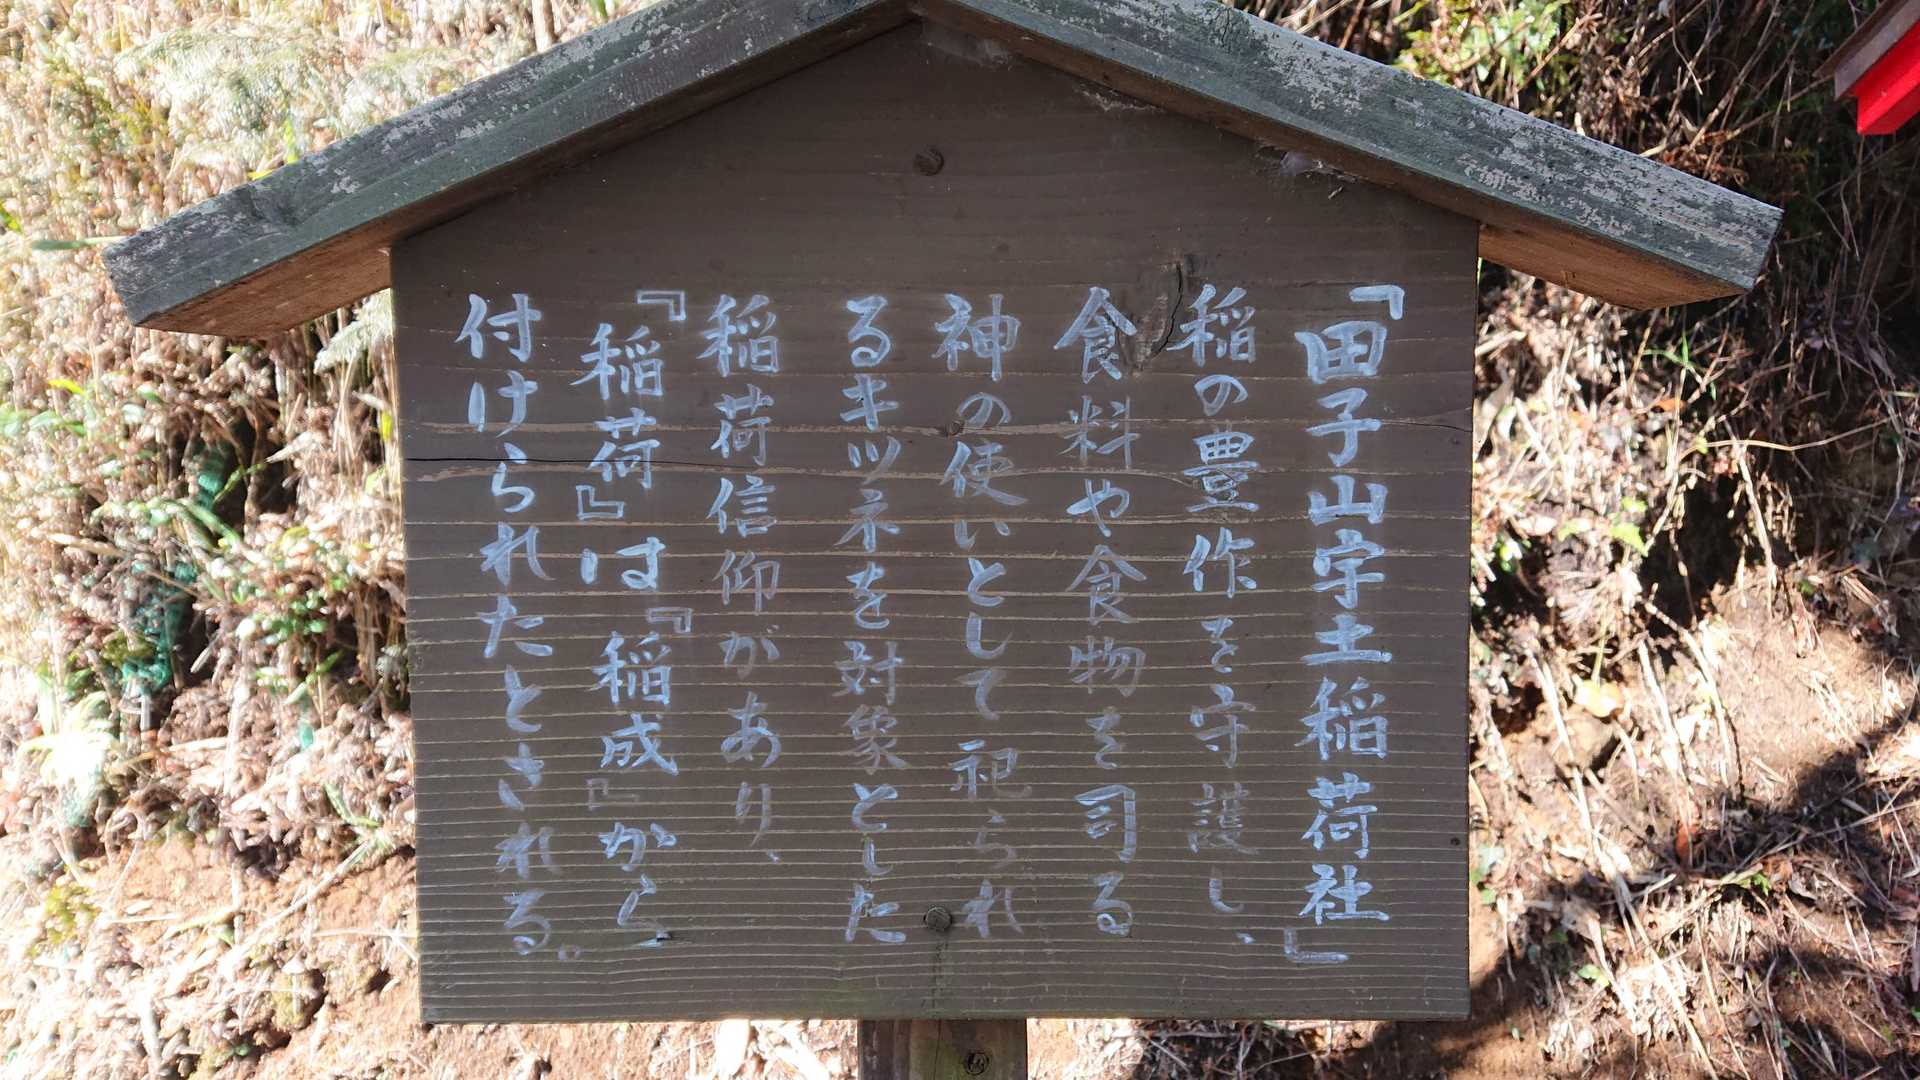 「田子山宇土稲荷社」
稲の豊作を守護し、
食料や食物を司る
神の使いとして祀られ
るキツネを対象とした
稲荷信仰があり、
『稲荷』は『稲成』から
付けられたとされる。